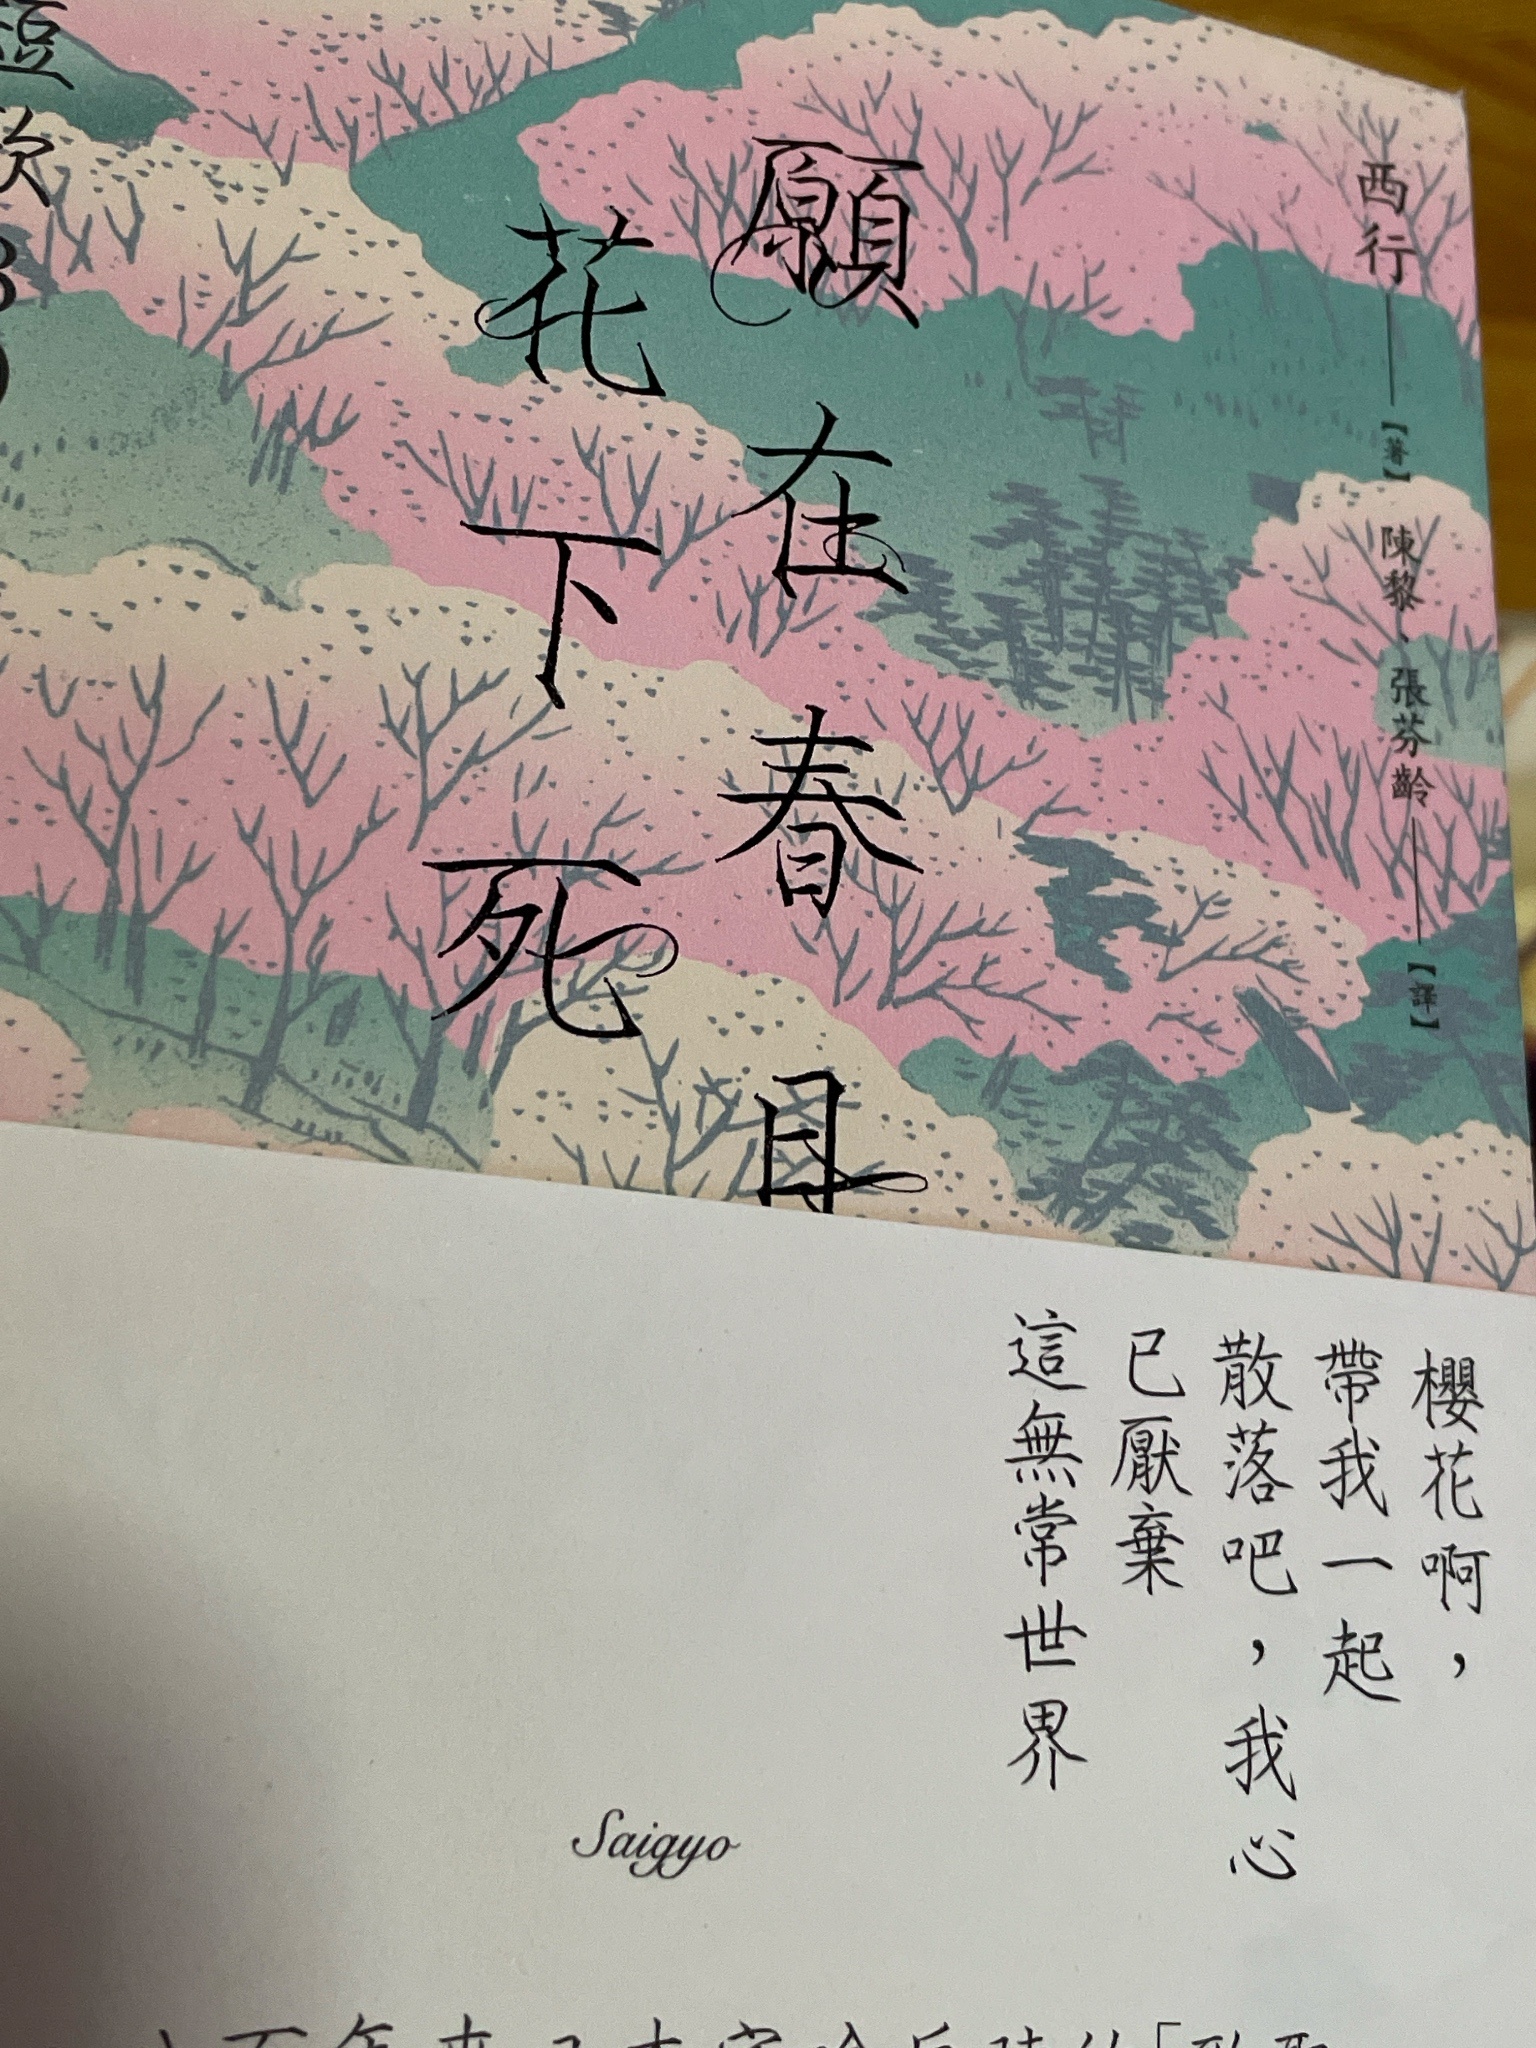 西行
【著】
陳黎、張芬齡
【譯】
願在春日
花下死
短歌30
櫻花啊，
帶我一起
散落吧，我心
已厭棄
這無常世界
Saigyo